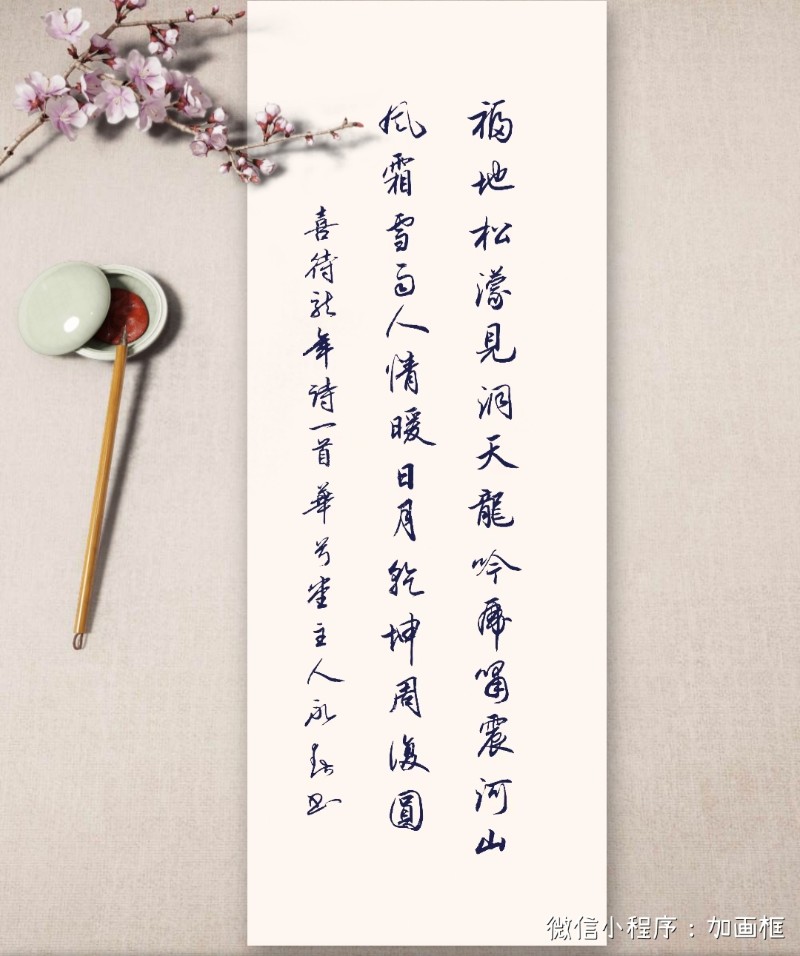 福地松濛見洞天龍吟虎嘯震河山
風霜雪雨人情暖日月乾坤周復圓
喜待龙年诗一首華兮堂主人永
微信小程序：加画框